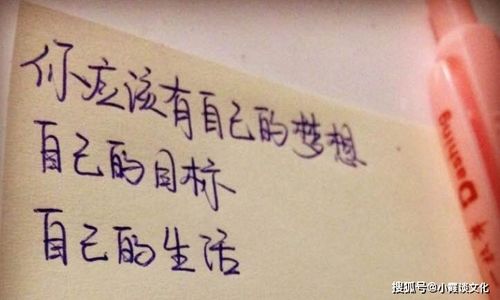 你应该有自己的梦想
自己的目标
自己的生活
Dashing
搜狐号@小霞谈文化